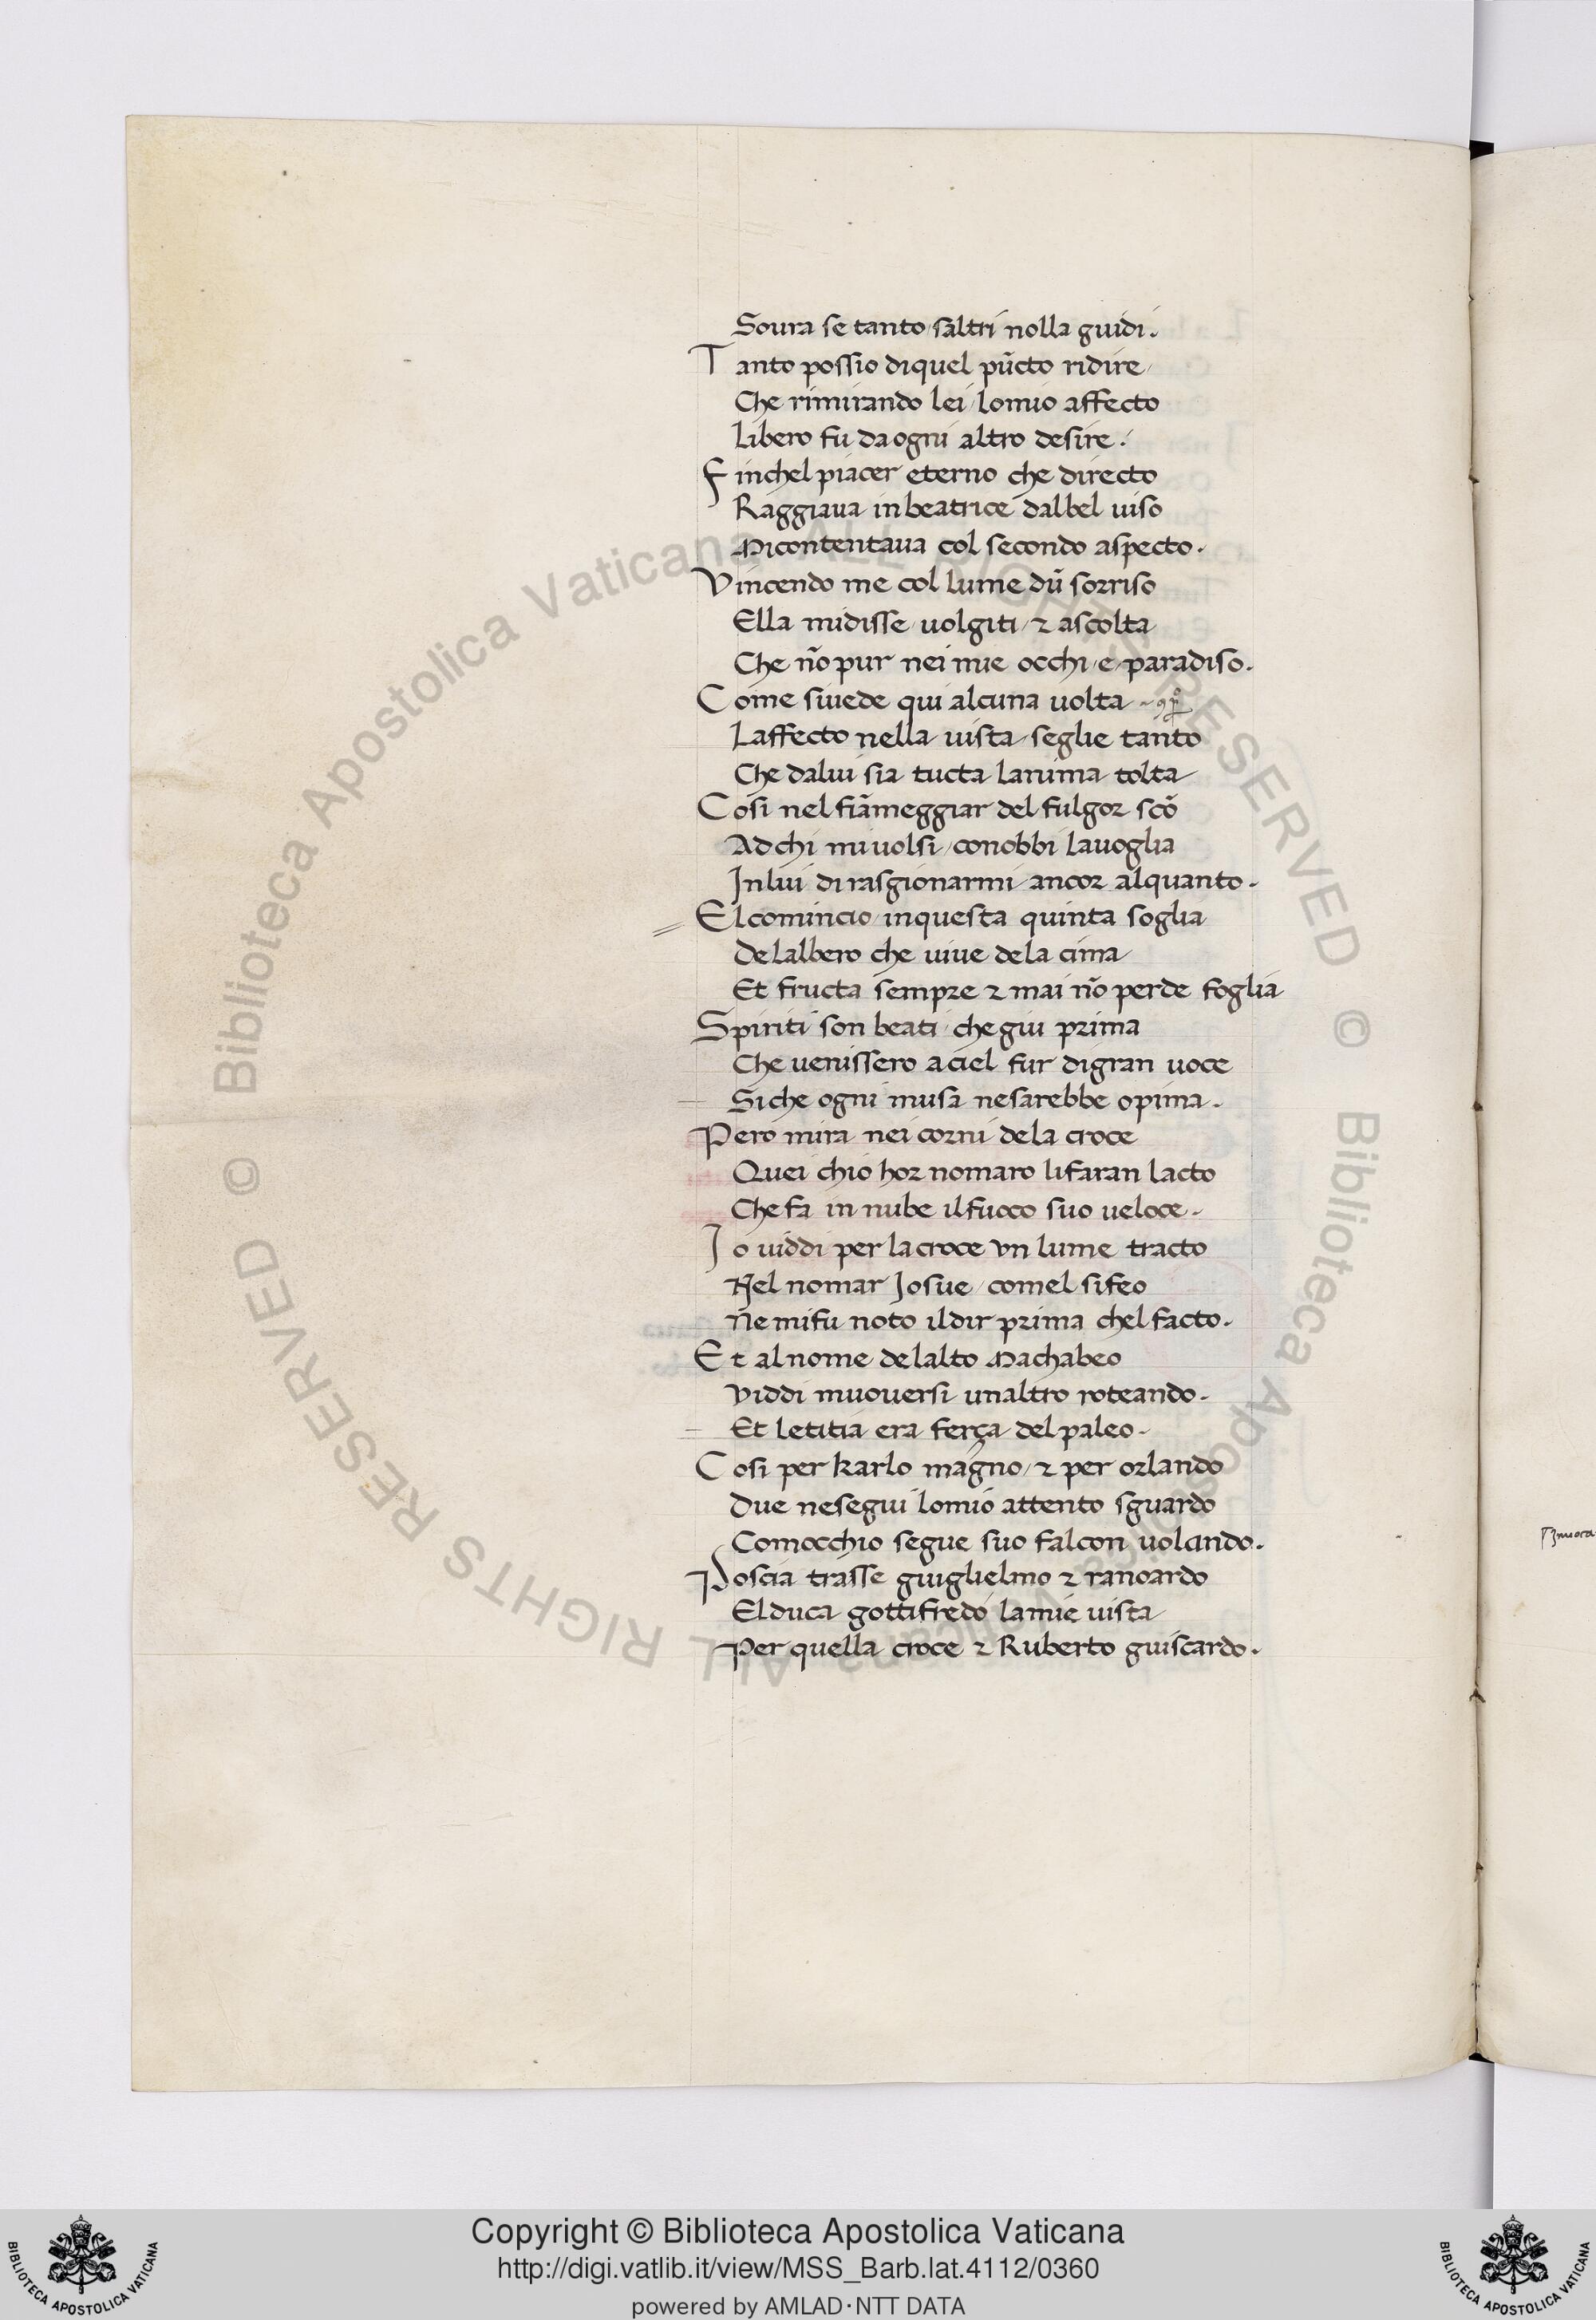 Soura se tanto saltri nolla guidi.
Tanto possio diquel pũcto ridire
Che rimirando lei lomio affecto
Libero fu da ogni altro desire.
Finchel piacer eterno che directo
Raggiaua in beatrice dalbel uiso
Micontentaua col secondo aspecto.
Vincendo me col lume dũ sorriso
Ella midisse uolgiti & ascolta
Che nõ pur nei mie occhi e paradiso.
Come siuede qui alcuna uolta
Laffecto nella uista seglie tanto
Che dalui sia tucta lanima tolta
Cosi nel fiãmeggiar del fulgor scõ
Ad chi mi uolsi conobbi lauoglia
Inlui di rasgionarmi ancor alquanto.
El comincio inquesta quinta soglia
Delalbero che uiue dela cima
Et fructa sempre & mai nõ perde foglia
Spiriti son beati che giu prima
Che uenissero aciel fur digran uoce
Siche ogni musa nesarebbe opima.
Pero mira nei corni dela croce
Quei chio hor nomaro lifaran lacto
Che fa in nube ilfuoco suo ueloce.
Io uiddi per lacroce vn lume tracto
Nel nomar Josue comel sifeo
Ne mifu noto ildir prima chel facto.
Et alnome delalto Machabeo
Viddi muouersi unaltro roteando.
Et letitia era ferça del paleo.
Cosi per karlo magno & per orlando
Due nesegui lomio attento sguardo
Comocchio segue suo falcon uolando.
Poscia trasse guiglielmo & ranoardo
Elduca gottifredo lamie uista
Per quella croce & Ruberto guiscardo.
Copyright © Biblioteca Apostolica Vaticana
http://digi.vatlib.it/view/MSS_Barb.lat.4112/0360
powered by AMLAD·NTT DATA
BIBLIOTECA APOSTOLICA VATICANA
BIBLIOTECA APOSTOLICA VATICANA
© Biblioteca Apostolica Vaticana ALL RIGHTS RESERVED © Biblioteca Apostolica Vaticana ALL RIGHTS RESERVED